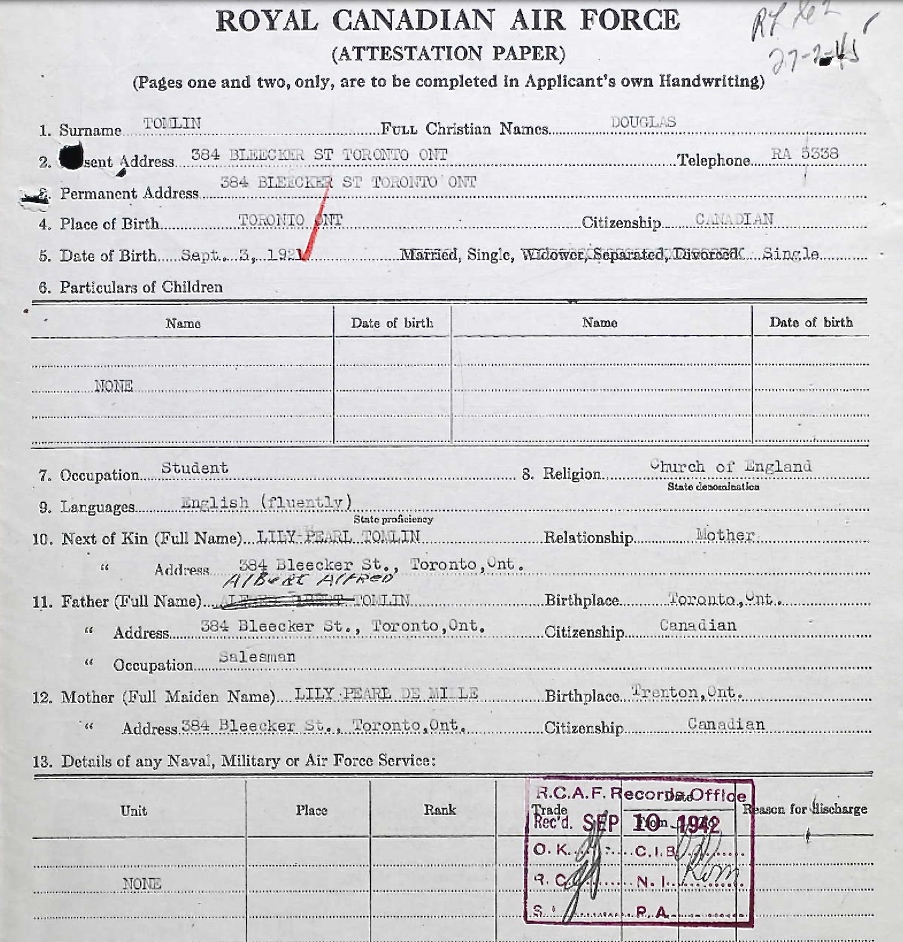 ROYAL CANADIAN AIR FORCE
(ATTESTATION PAPER)
27-2-45
(Pages one and two, only, are to be completed in Applicant's own Handwriting)
1. Surname TOMLIN FULL Christian Names DOUGLAS
2. sent Address 384 BLEECKER ST TORONTO ONT Telephone RA 5338
3. Permanent Address 384 BLEECKER ST TORONTO ONT
4. Place of Birth TORONTO ONT Citizenship CANADIAN
5. Date of Birth Sept. 3, 192 Married, Single, Widower, Separated, Divorced Single
6. Particulars of Children
Name Date of birth Name Date of birth
NONE
7. Occupation Student 8. Religion Church of England
State denomination
9. Languages English (fluently)
State proficiency
10. Next of Kin (Full Name) LILY PEARL TOMLIN Relationship Mother
" Address 384 Bleecker St., Toronto,Ont.
Albert Alfred
11. Father (Full Name) TOMLIN Birthplace Toronto,Ont.
" Address 384 Bleecker St., Toronto,Ont. Citizenship Canadian
" Occupation Salesman
12. Mother (Full Maiden Name) LILY PEARL DE MILLE Birthplace Trenton,Ont.
" Address 384 Bleecker St., Toronto,Ont. Citizenship Canadian
13. Details of any Naval, Military or Air Force Service:
R.C.A.F. Records Office
Unit Place Rank Trade Date Reason for discharge
Rec'd. SEP 10 1942
O.K. C.I.B.
NONE R.C. N.I.
S. P.A.